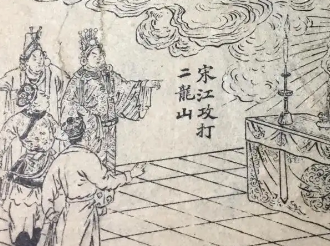 宋江攻打
二龍山